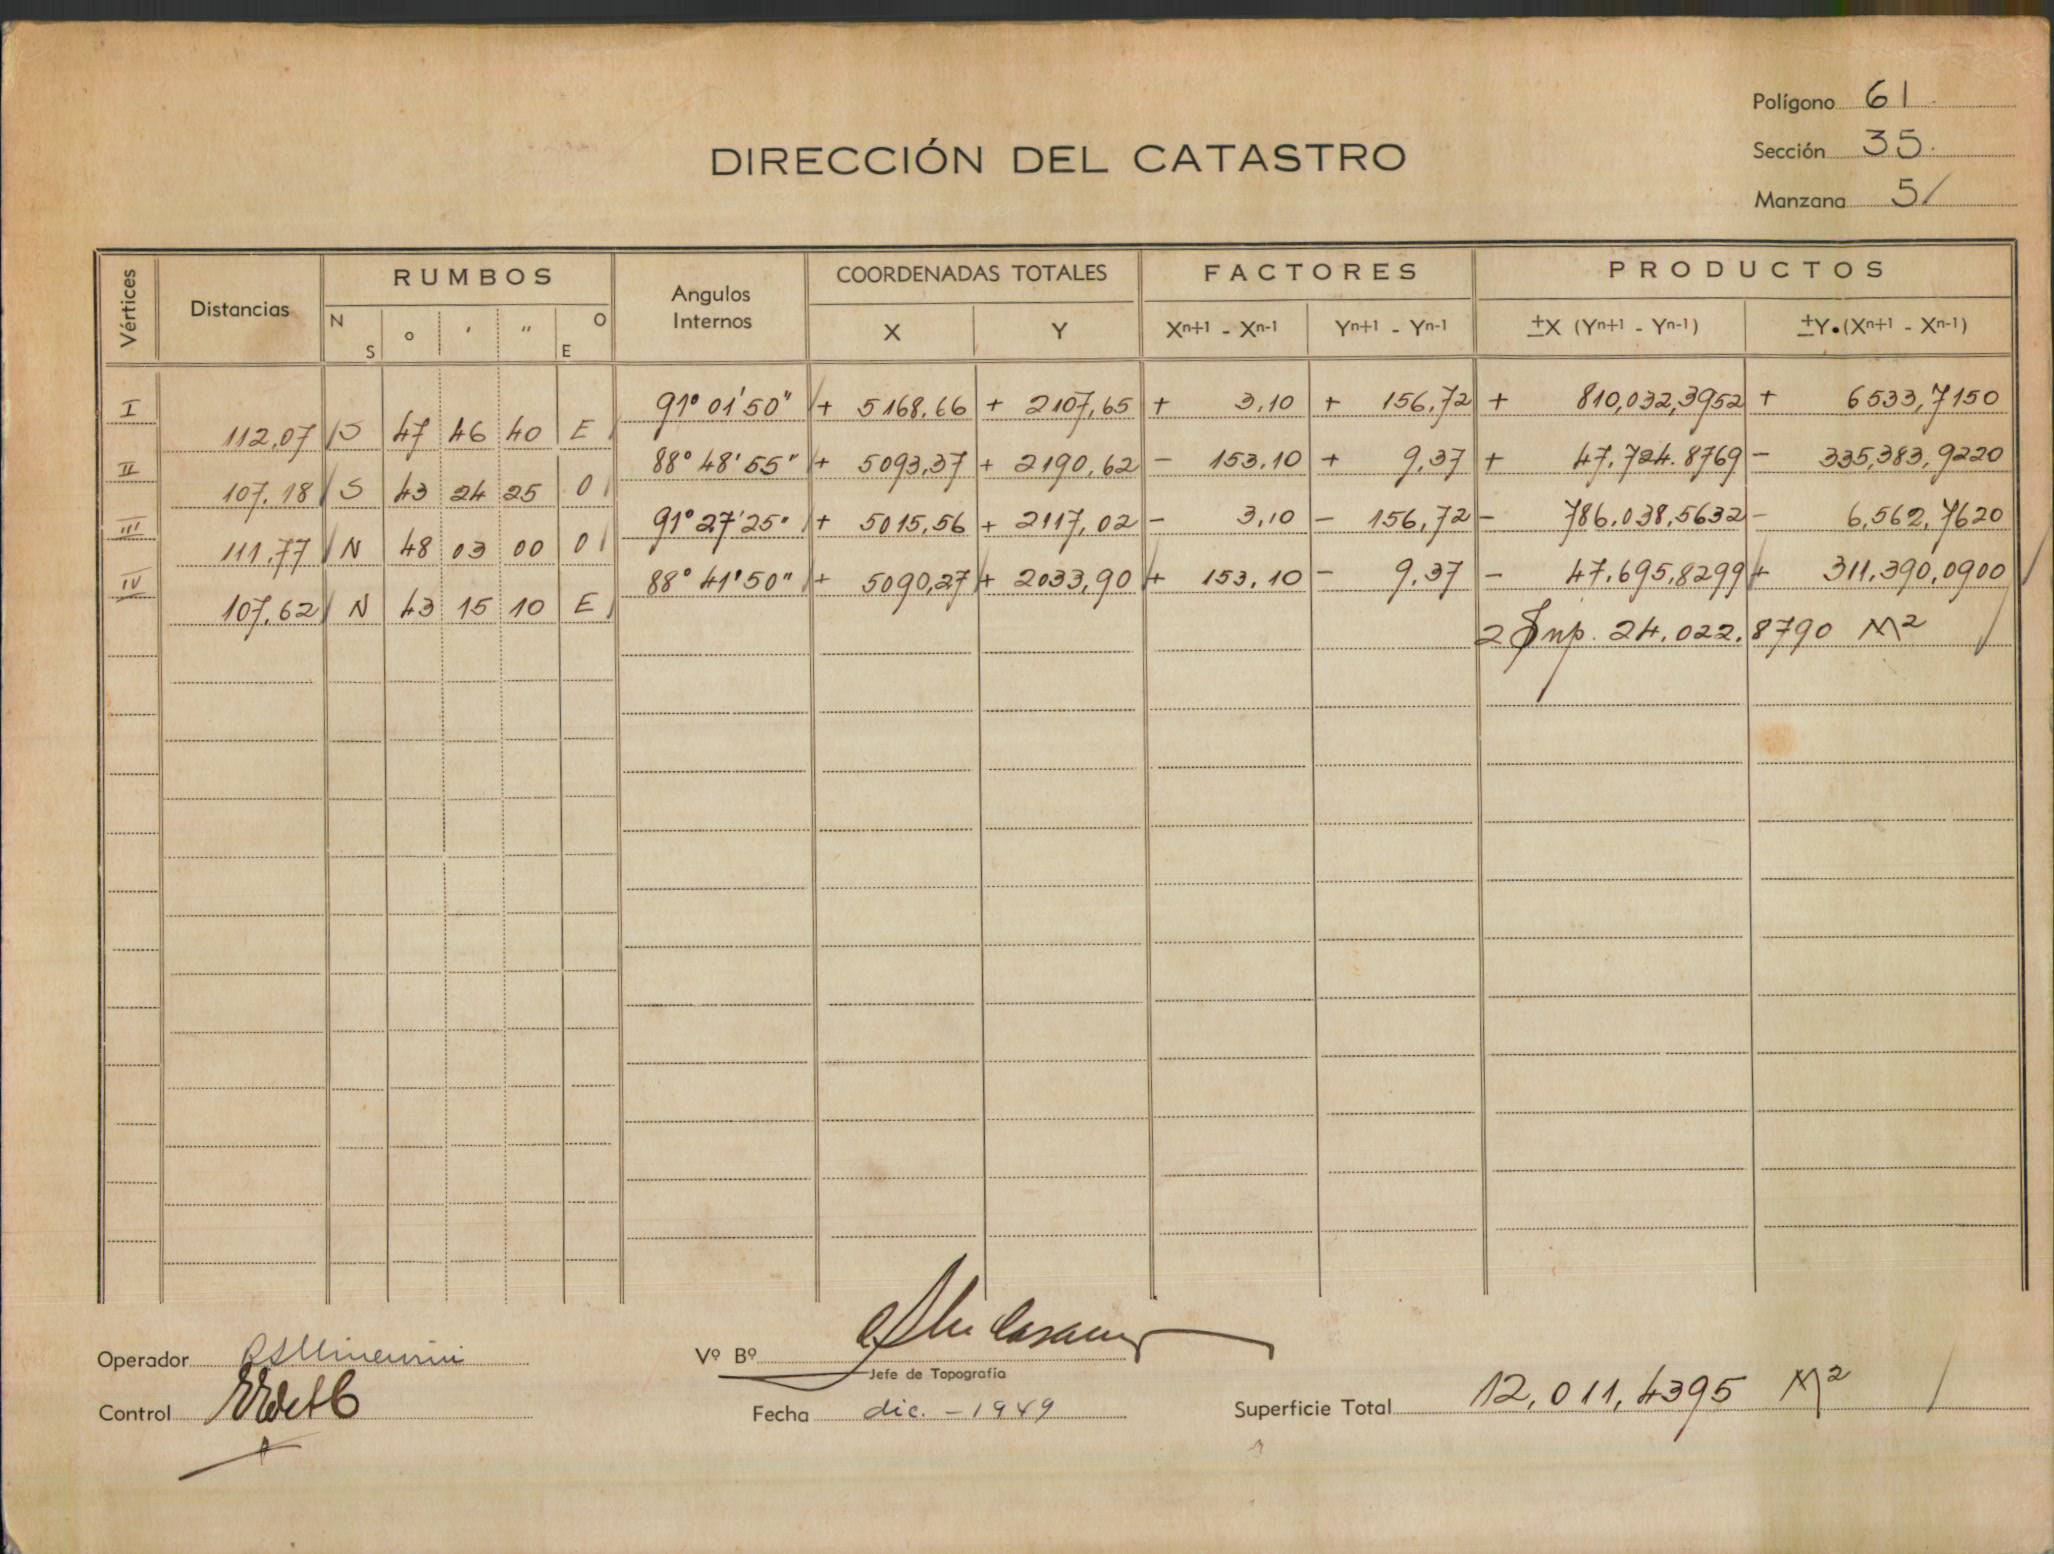 Polígono 61.
Sección 35.
Manzana 5/
DIRECCIÓN DEL CATASTRO
Vértices Distancias RUMBOS Angulos Internos COORDENADAS TOTALES FACTORES PRODUCTOS
N S ° ′ ″ O E X Y Xⁿ⁺¹ - Xⁿ⁻¹ Yⁿ⁺¹ - Yⁿ⁻¹ ±X (Yⁿ⁺¹ - Yⁿ⁻¹) ±Y•(Xⁿ⁺¹ - Xⁿ⁻¹)
I 91° 01' 50" + 5168,66 + 2107,65 + 3,10 + 156,72 + 810,032,3952 + 6533,7150
112,07 S 47 46 40 E
II 88° 48' 55" + 5093,37 + 2190,62 - 153,10 + 9,37 + 47.724.8769 - 335,383,9220
107.18 S 43 24 25 O
III 91° 27' 25" + 5015,56 + 2117,02 - 3,10 - 156,72 - 786.038,5632 - 6,562,7620
111,77 N 48 03 00 O
IV 88° 41' 50" + 5090,27 + 2033,90 + 153,10 - 9,37 - 47.695,8299 + 311.390,0900
107,62 N 43 15 10 E
2 Sup. 24.022.8790 M²
Operador
Vº Bº
Jefe de Topografía
Control
Fecha dic. - 1949
Superficie Total 12,011,4395 M²